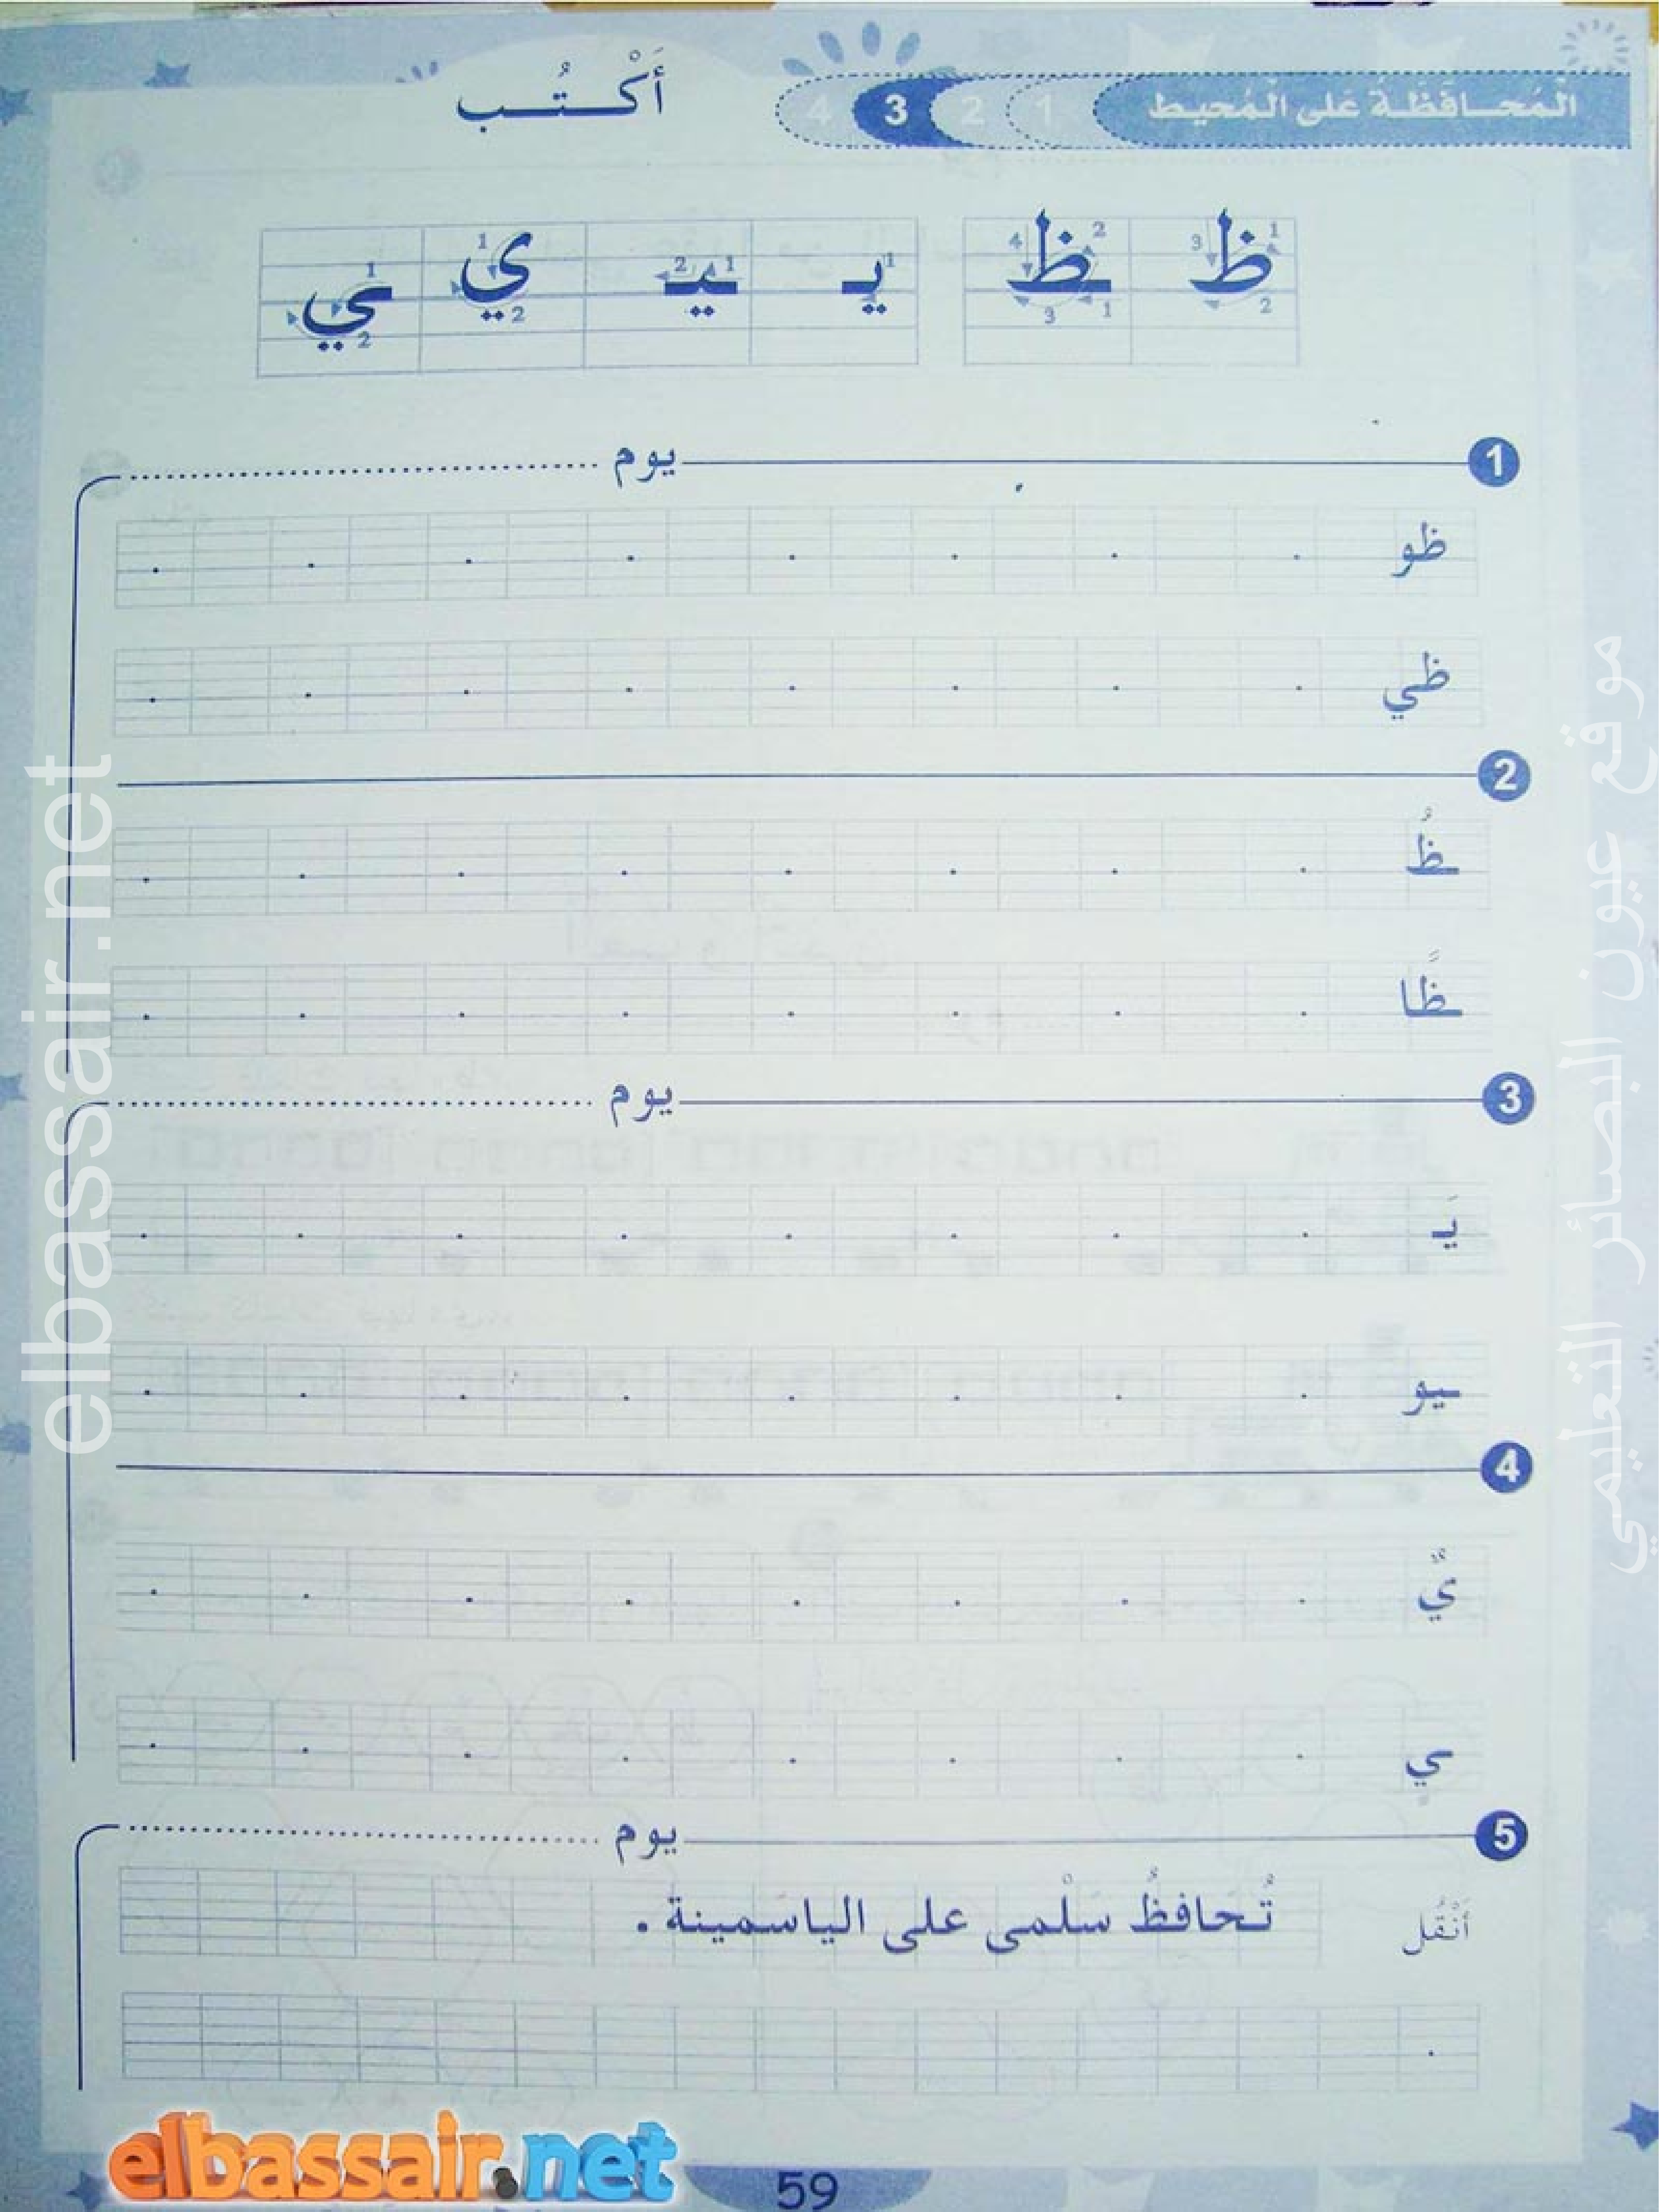 الْمُحـافَظـةُ عَلى الْمُحيط 1 2 3 4 أَكْـتُـب
ظ 1 2 3 ـظ 1 2 3 4 يـ 1 ـيـ 1 2 ي 1 2 ـي 1 2
1 يوم
ظو
ظي
2
ـظُ
ـظًا
3 يوم
يَـ
ـيو
4
يٌّ
ـي
5 يوم
أَنْقُل تُـحَافظُ سَلْمى على الياسَمينة .
elbassair.net
موقع عيون البصائر التعليمي
elbassair.net
59